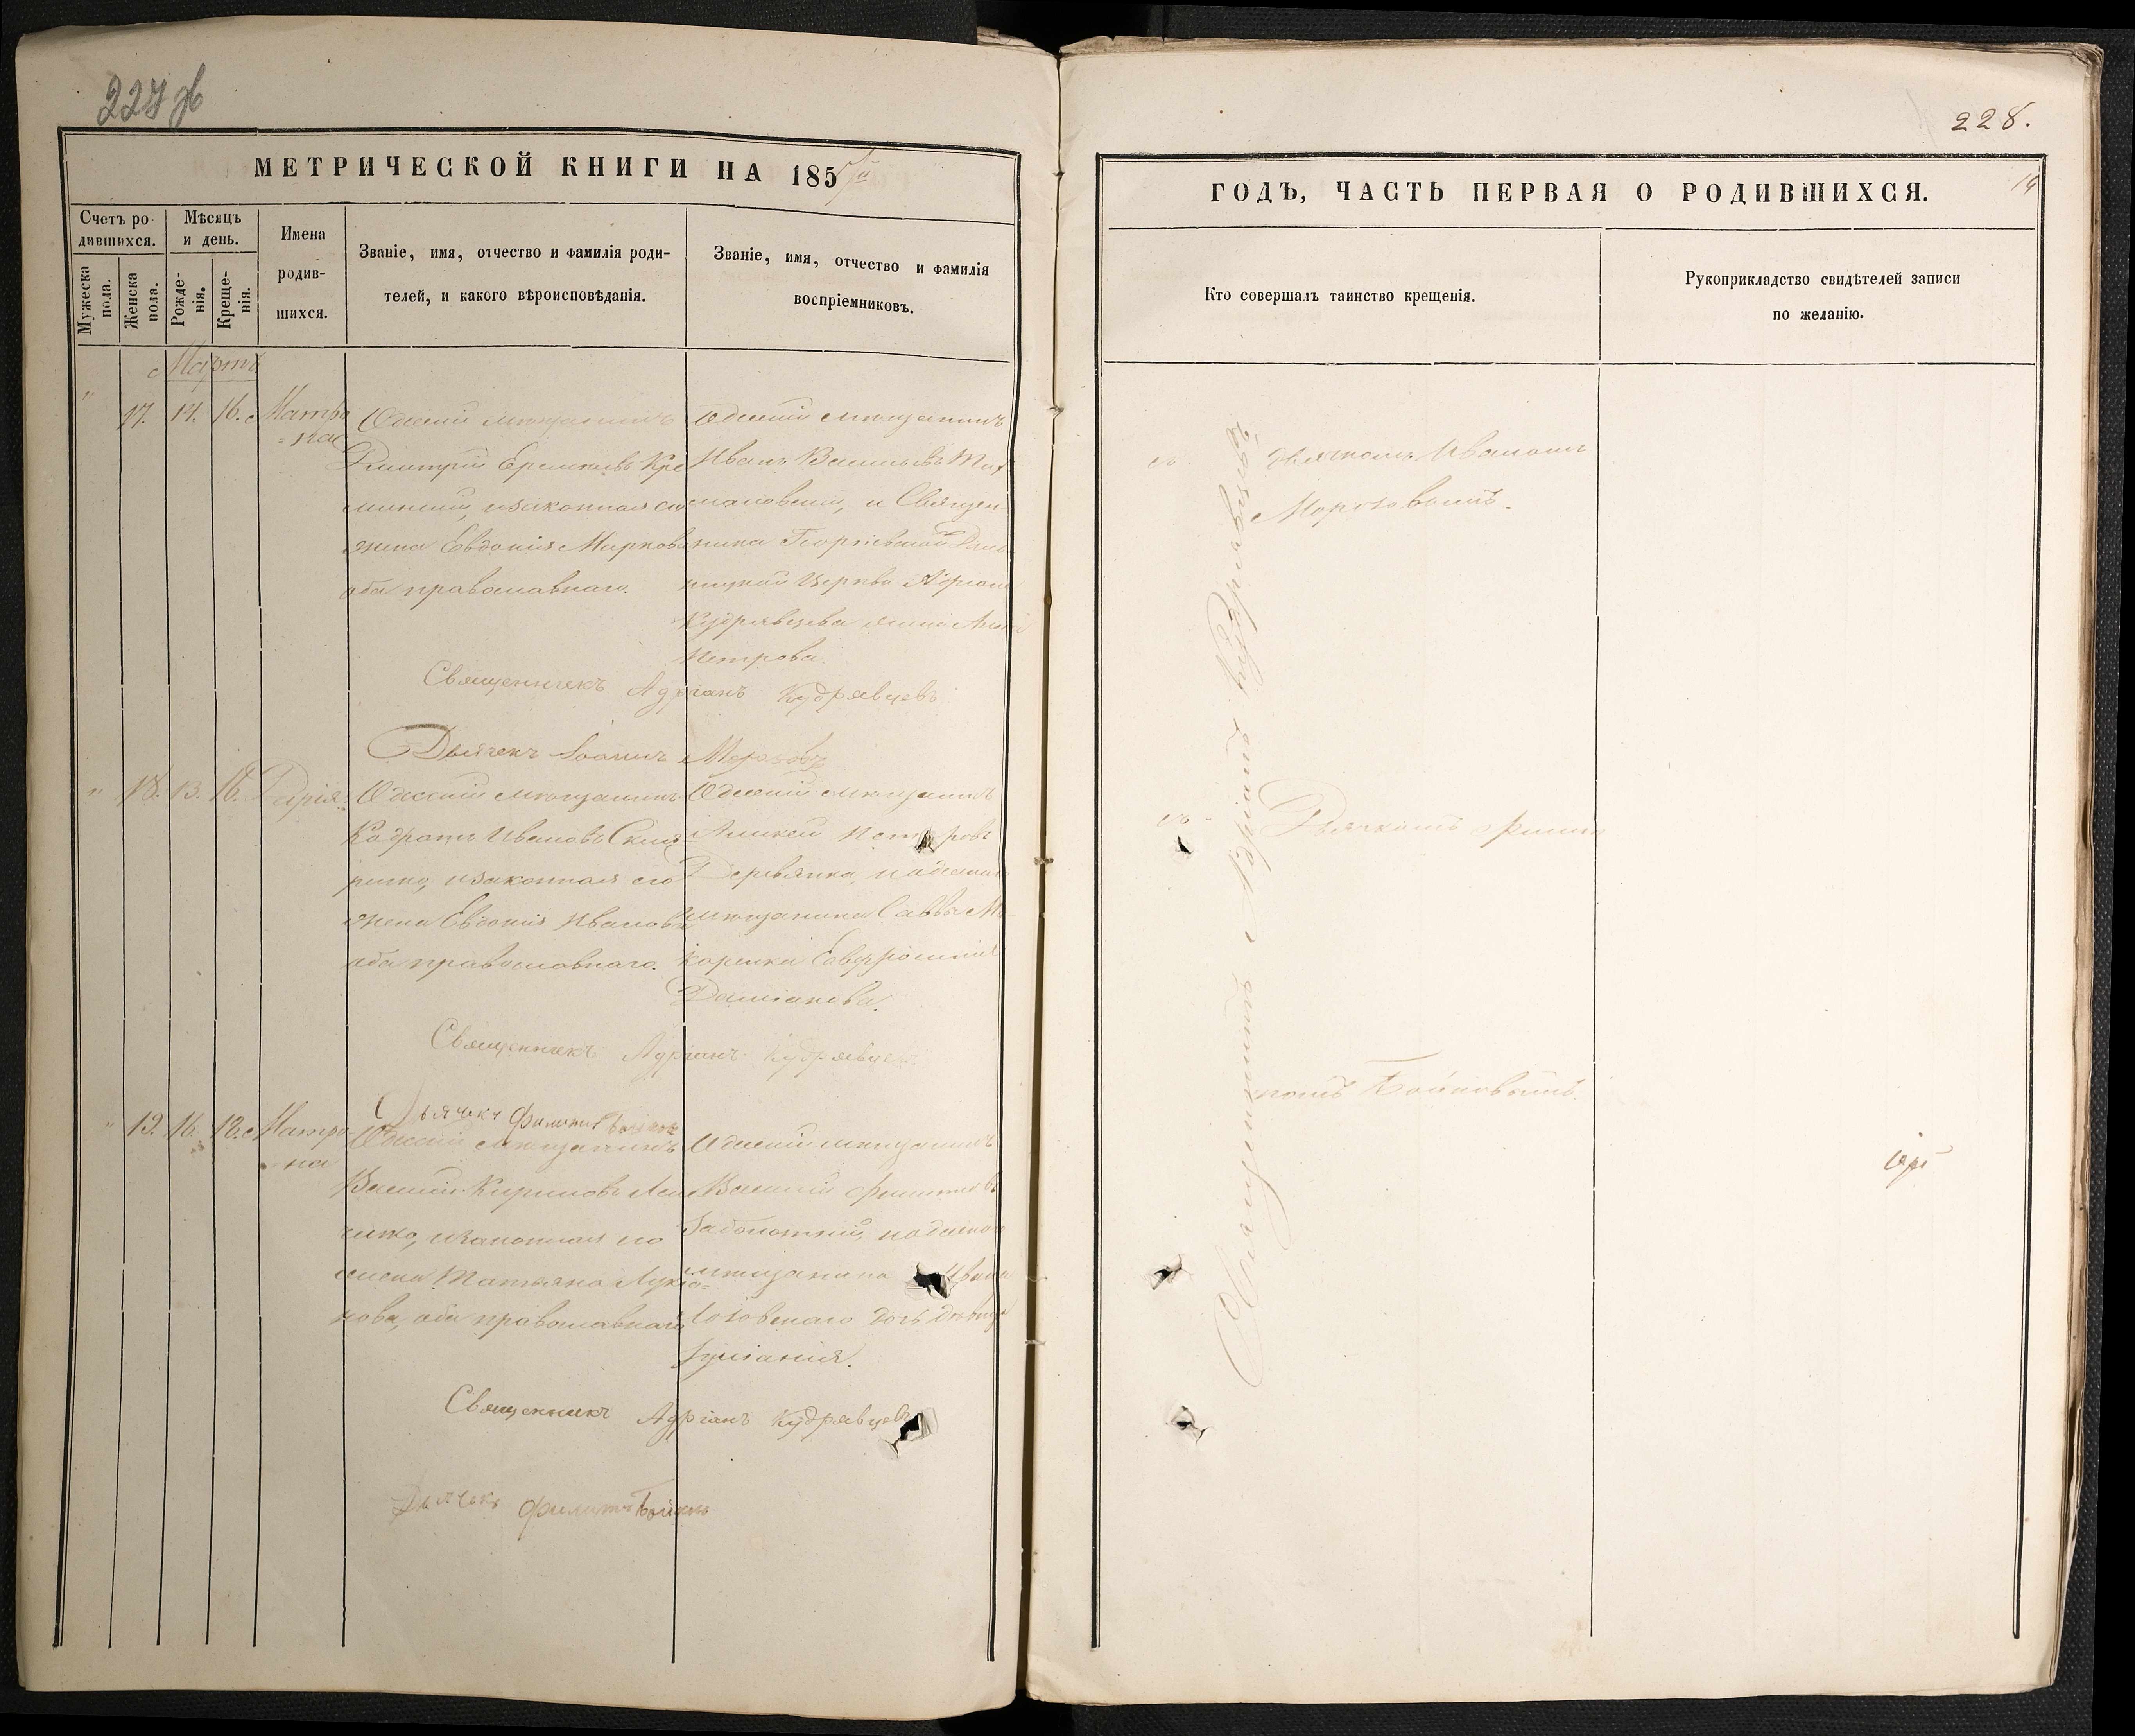 227 об
МЕТРИЧЕСКОЙ КНИГИ НА 185
Счетъ ро-
дившихся.
Мужеска
пола.
Женска
пола.
Мѣсяцъ
и день.
Рожде-
нія.
Креще-
нія.
Имена
родив-
шихся.
Званіе, имя, отчество и фамилія роди-
телей, и какого вѣроисповѣданія.
Званіе, имя, отчество и фамилія
воспріемниковъ.
Мартъ
" 17. 14. 16. Матро
=на
Одесскій мѣщанинъ
Дмитрій
законная
жена Евдокія Маркова
оба православнаго.
Одесскій мѣщанинъ
Иванъ Васильевъ
и Священ
ника Георгіевской
Церкви Адріана
Кудрявцева жена Анна
Петрова.
Священникъ Адріанъ Кудрявцевъ
Дьячекъ Іоаннъ Морозовъ
" 18. 13. 16. Дарія
Одесскій мѣщанинъ
Кодратъ Ивановъ
законная его
жена Евдокія Иванова
оба православнаго.
Одесскій мѣщанинъ
Петровъ
Деревянка, и одесскаго
мѣщанина Саввы Ма-
каренка Евфросинія
Даміанова.
Священникъ Адріанъ Кудрявцевъ
Дьячекъ Филиппъ Бойковъ
" 19. 16. 18. Матро-
на
Одесскій мѣщанинъ
Василій Кириловъ
законная его
жена Татьяна Лукія=
нова, оба православнаго
Одесскій мѣщанинъ
Василій Филипповъ
Заболотній, и одескаго
мѣщанина
дочь дѣвица
Іуліанія.
Священникъ Адріанъ Кудрявцевъ
Дьячекъ Филиппъ Бойковъ
228.
14
ГОДЪ, ЧАСТЬ ПЕРВАЯ О РОДИВШИХСЯ.
Кто совершалъ таинство крещенія.
Рукоприкладство свидѣтелей записи
по желанію.
Священникъ Адріанъ Кудрявцевъ
съ Дьячкомъ Иваномъ
Морозовымъ.
съ Дьячкомъ Филип
помъ Бойковымъ.